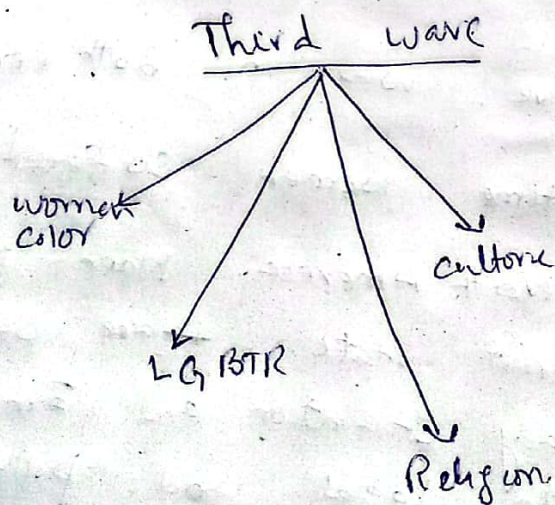 Third wave
women
color
LGBTR
Culture
Religion